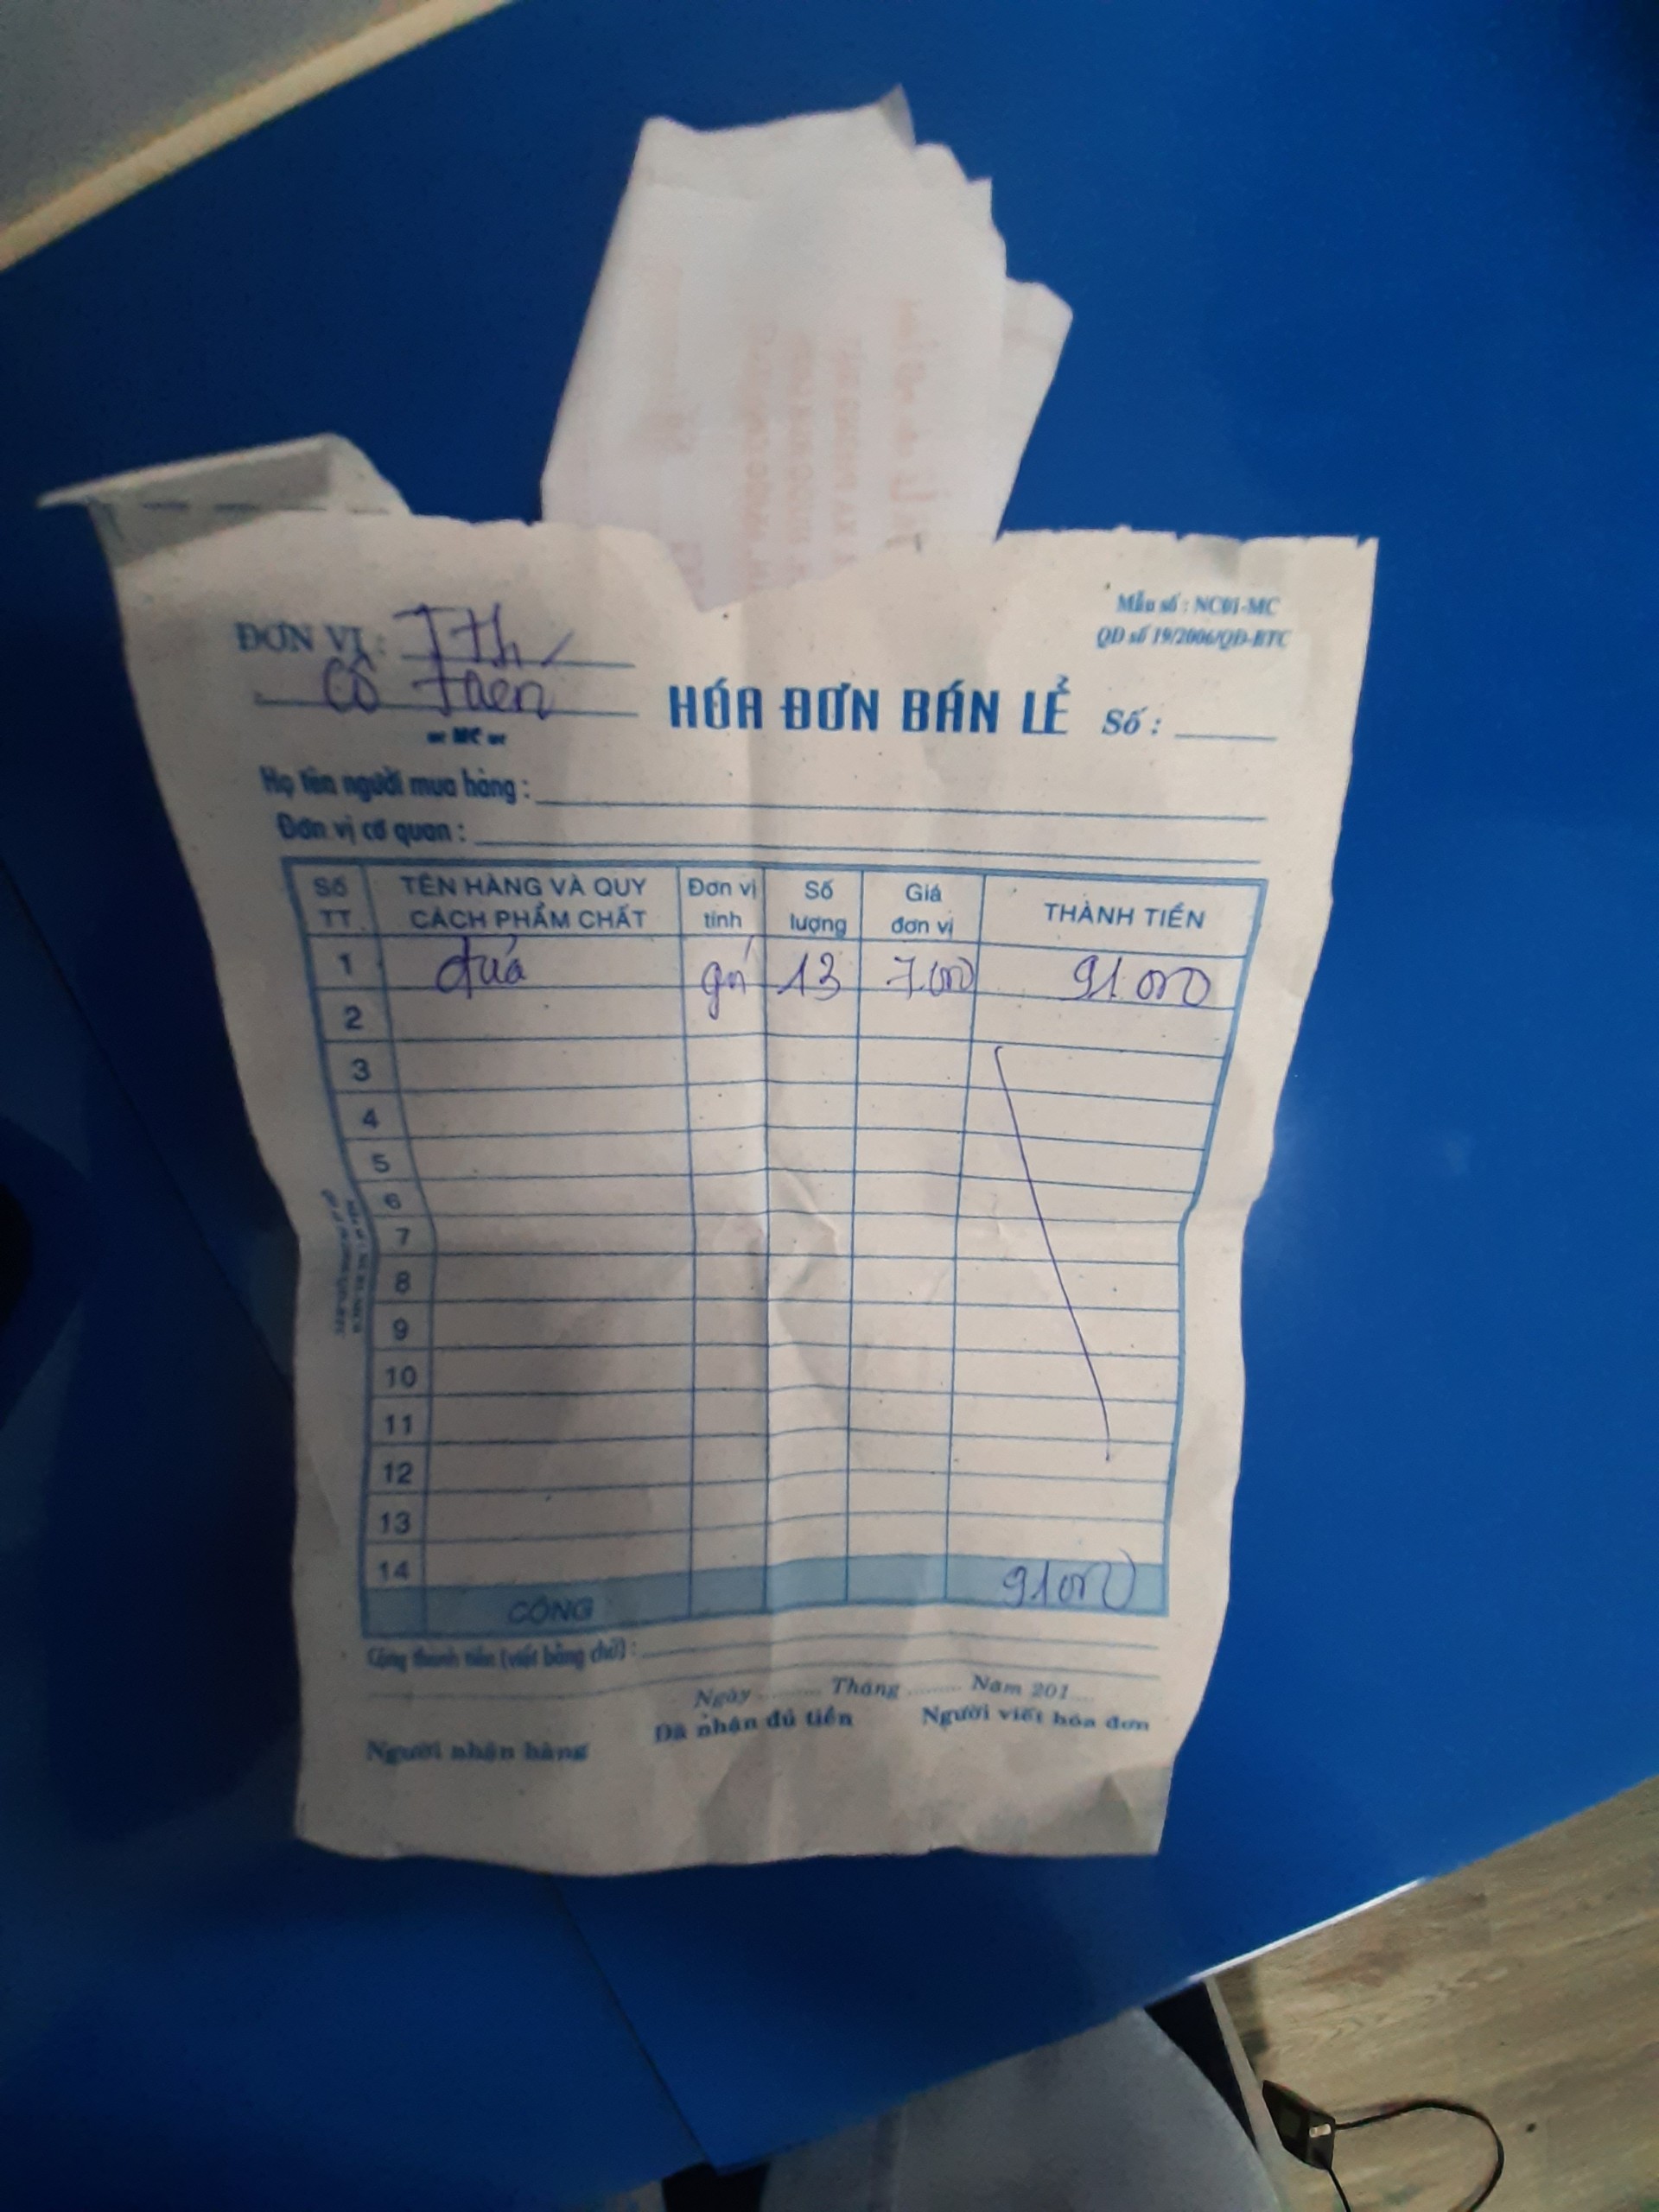 Mẫu số : NC01-MC
QD số 19/2006/QĐ-BTC
ĐƠN VỊ : Tth
Cô
MC
HÓA ĐƠN BÁN LẺ Số :
Họ tên người mua hàng :
Đơn vị cơ quan :
Số TT TÊN HÀNG VÀ QUY CÁCH PHẨM CHẤT Đơn vị tính Số lượng Giá đơn vị THÀNH TIỀN
1 đũa 13 7.000 91.000
2
3
4
5
6
7
8
9
10
11
12
13
14
CỘNG 91.000
Cộng thành tiền (viết bằng chữ) :
Ngày ......... Tháng ......... Năm 201....
Người nhận hàng Đã nhận đủ tiền Người viết hóa đơn